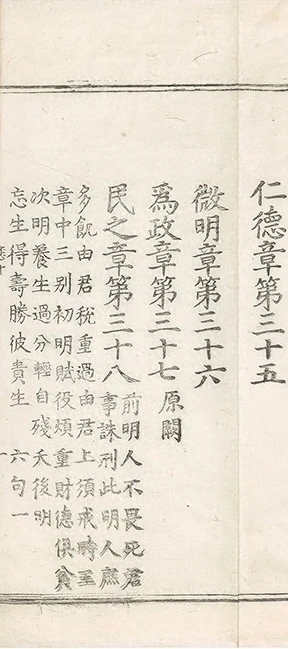 仁德章第三十五
微明章第三十六
為政章第三十七 原闕
民之章第三十八 前明人不畏死君
事誅刑此明人庶
多飢由君稅重過由君上須戒時至
章中三別初明賦役煩重財德俱貧
次明養生過分輕自殘夭後明
忘生得壽勝彼貴生 六句一